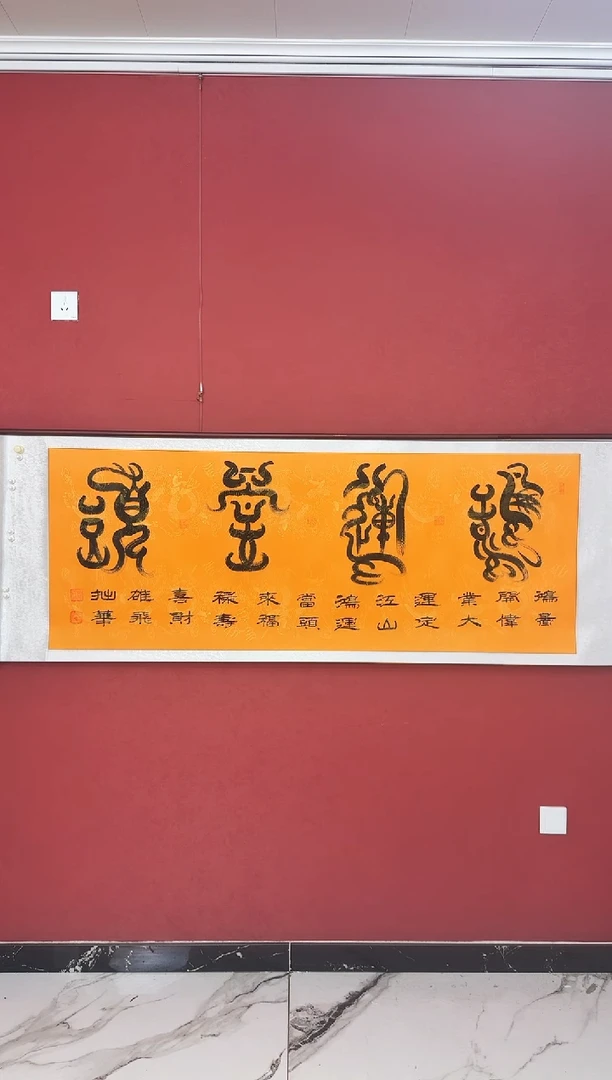 鴻運當頭
鴻景
開偉
業大
運定
江山
鴻運
當頭
來福
祿壽
喜財
雄飛
拙筆